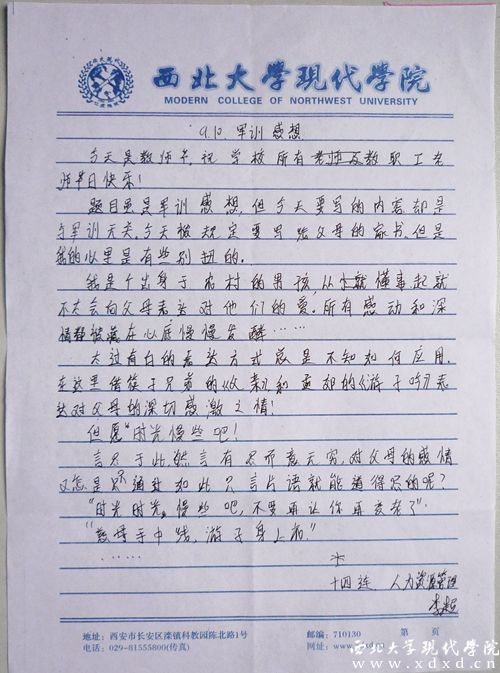 西北大学現代学院
MODERN COLLEGE OF NORTHWEST UNIVERSITY
9.10 军训感想
今天是教师节,祝学校所有老师及教职工老
师节日快乐!
题目虽是军训感想,但今天要写的内容却是
与军训无关,今天被规定要写给父母的家书,但是
我的心里是有些别扭的。
我是个出身于农村的男孩,从小就懂事起就
不太会向父母表达对他们的爱。所有感动和深
情都被藏在心底慢慢发酵……
太过直白的表达方式总是不知如何应用,
在这里借筷子兄弟的《父亲》和孟郊的《游子吟》表
达对父母的深切感激之情!
但愿“时光慢些吧!
言尽于此,然言有尽而意无穷,对父母的感情
又怎是只通过如此只言片语就能道得尽的呢?
“时光时光,慢些吧,不要再让你再变老了”
“慈母手中线,游子身上衣。”
……
十四连 人力资源管理
李超
地址:西安市长安区滦镇科教园陈北路1号
邮编:710130
第 页
电话:029-81555800(传真)
西北大学现代学院
www.xdxd.cn